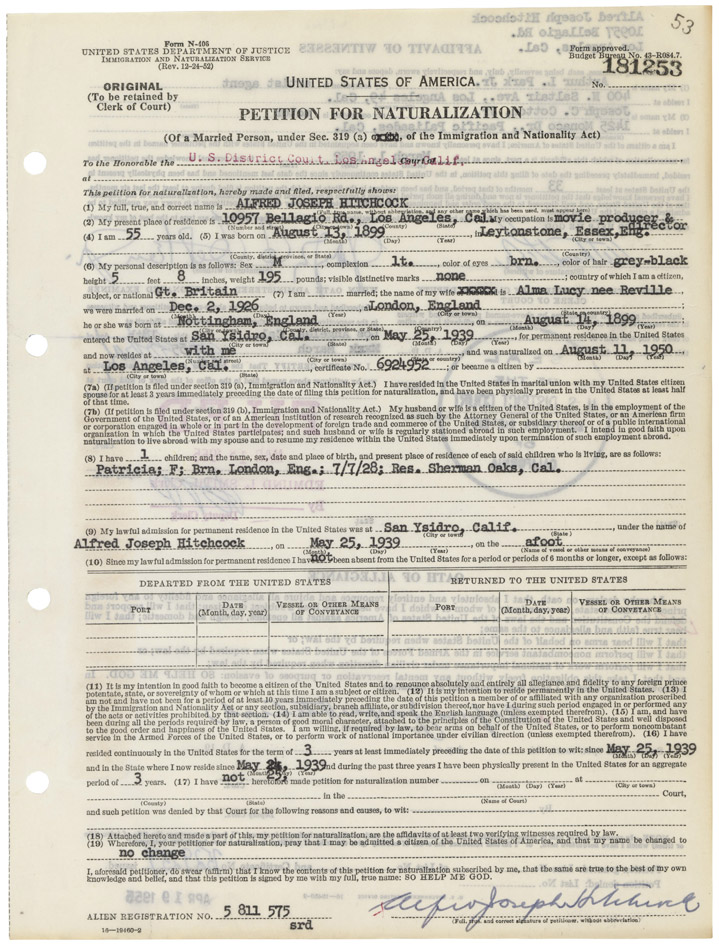 53
Form N-406
UNITED STATES DEPARTMENT OF JUSTICE
IMMIGRATION AND NATURALIZATION SERVICE
(Rev. 12-24-52)
Form approved.
Budget Bureau No. 43-R084.7.
ORIGINAL
(To be retained by
Clerk of Court)
UNITED STATES OF AMERICA.
No. 181253
PETITION FOR NATURALIZATION
(Of a Married Person, under Sec. 319 (a) of the Immigration and Nationality Act)
To the Honorable the U. S. District Court, Los Angeles, Calif.
at
This petition for naturalization, hereby made and filed, respectfully shows:
(1) My full, true, and correct name is ALFRED JOSEPH HITCHCOCK
(Full, true name, without abbreviation, and any other name which has been used, must appear here)
(2) My present place of residence is 10957 Bellagio Rd., Los Angeles, Cal. (3) My occupation is movie producer & director
(Number and street) (City or town) (County) (State)
(4) I am 55 years old. (5) I was born on August 13, 1899 in Leytonstone, Essex, Eng.
(Month) (Day) (Year) (City or town)
(County, district, province, or State) (Country)
(6) My personal description is as follows: Sex M, complexion lt. color of eyes brn. color of hair grey-black
height 5 feet 8 inches, weight 195 pounds; visible distinctive marks none; country of which I am a citizen,
subject, or national Gt. Britain (7) I am married; the name of my wife is Alma Lucy nee Reville
we were married on Dec. 2, 1926 at London, England
(Month) (Day) (Year) (City or town) (State or country)
he or she was born at Nottingham, England on August 14, 1899
(City or town) (County, district, province, or State) (Country) (Month) (Day) (Year)
entered the United States at San Ysidro, Cal. on May 25, 1939, for permanent residence in the United States
(City or town) (State) (Month) (Day) (Year)
and now resides at with me and was naturalized on August 11, 1950
(Month) (Day) (Year)
at Los Angeles, Cal. certificate No. 6924952; or became a citizen by
(City or town) (State)
(7a) (If petition is filed under section 319 (a), Immigration and Nationality Act.) I have resided in the United States in marital union with my United States citizen
spouse for at least 3 years immediately preceding the date of filing this petition for naturalization, and have been physically present in the United States at least half
of that time.
(7b) (If petition is filed under section 319 (b), Immigration and Nationality Act.) My husband or wife is a citizen of the United States, is in the employment of the
Government of the United States, or of an American institution of research recognized as such by the Attorney General of the United States, or an American firm
or corporation engaged in whole or in part in the development of foreign trade and commerce of the United States, or subsidiary thereof or of a public international
organization in which the United States participates; and such husband or wife is regularly stationed abroad in such employment. I intend in good faith upon
naturalization to live abroad with my spouse and to resume my residence within the United States immediately upon termination of such employment abroad.
(8) I have 1 children; and the name, sex, date and place of birth, and present place of residence of each of said children who is living, are as follows:
Patricia; F; Brn. London, Eng.; 7/7/28; Res. Sherman Oaks, Cal.
(9) My lawful admission for permanent residence in the United States was at San Ysidro, Calif., under the name of
(City or town) (State)
Alfred Joseph Hitchcock, on May 25, 1939 on the afoot
(Month) (Day) (Year) (Name of vessel or other means of conveyance)
(10) Since my lawful admission for permanent residence I have not been absent from the United States for a period or periods of 6 months or longer, except as follows:
DEPARTED FROM THE UNITED STATES RETURNED TO THE UNITED STATES
PORT DATE (Month, day, year) VESSEL OR OTHER MEANS OF CONVEYANCE PORT DATE (Month, day, year) VESSEL OR OTHER MEANS OF CONVEYANCE
(11) It is my intention in good faith to become a citizen of the United States and to renounce absolutely and entirely all allegiance and fidelity to any foreign prince
potentate, state, or sovereignty of whom or which at this time I am a subject or citizen. (12) It is my intention to reside permanently in the United States. (13) I
am not and have not been for a period of at least 10 years immediately preceding the date of this petition a member of or affiliated with any organization proscribed
by the Immigration and Nationality Act or any section, subsidiary, branch affiliate, or subdivision thereof, nor have I during such period engaged in or performed any
of the acts or activities prohibited by that section. (14) I am able to read, write, and speak the English language (unless exempted therefrom). (15) I am, and have
been during all the periods required by law, a person of good moral character, attached to the principles of the Constitution of the United States and well disposed
to the good order and happiness of the United States. I am willing, if required by law, to bear arms on behalf of the United States, or to perform noncombatant
service in the Armed Forces of the United States, or to perform work of national importance under civilian direction (unless exempted therefrom). (16) I have
resided continuously in the United States for the term of 3 years at least immediately preceding the date of this petition to wit: since May 25, 1939
(Month) (Day) (Year)
and in the State where I now reside since May 25, 1939 and during the past three years I have been physically present in the United States for an aggregate
(Month) (Day) (Year)
period of 3 years. (17) I have not heretofore made petition for naturalization number on at
(Month) (Day) (Year) (City or town)
in the Court,
(County) (State) (Name of Court)
and such petition was denied by that Court for the following reasons and causes, to wit:
(18) Attached hereto and made a part of this, my petition for naturalization, are the affidavits of at least two verifying witnesses required by law.
(19) Wherefore, I, your petitioner for naturalization, pray that I may be admitted a citizen of the United States of America, and that my name be changed to
no change
I, aforesaid petitioner, do swear (affirm) that I know the contents of this petition for naturalization subscribed by me, that the same are true to the best of my own
knowledge and belief, and that this petition is signed by me with my full, true name: SO HELP ME GOD.
Alfred Joseph Hitchcock
(Full, true, and correct signature of petitioner, without abbreviation)
ALIEN REGISTRATION NO. 5 811 575
srd
16—19460-2